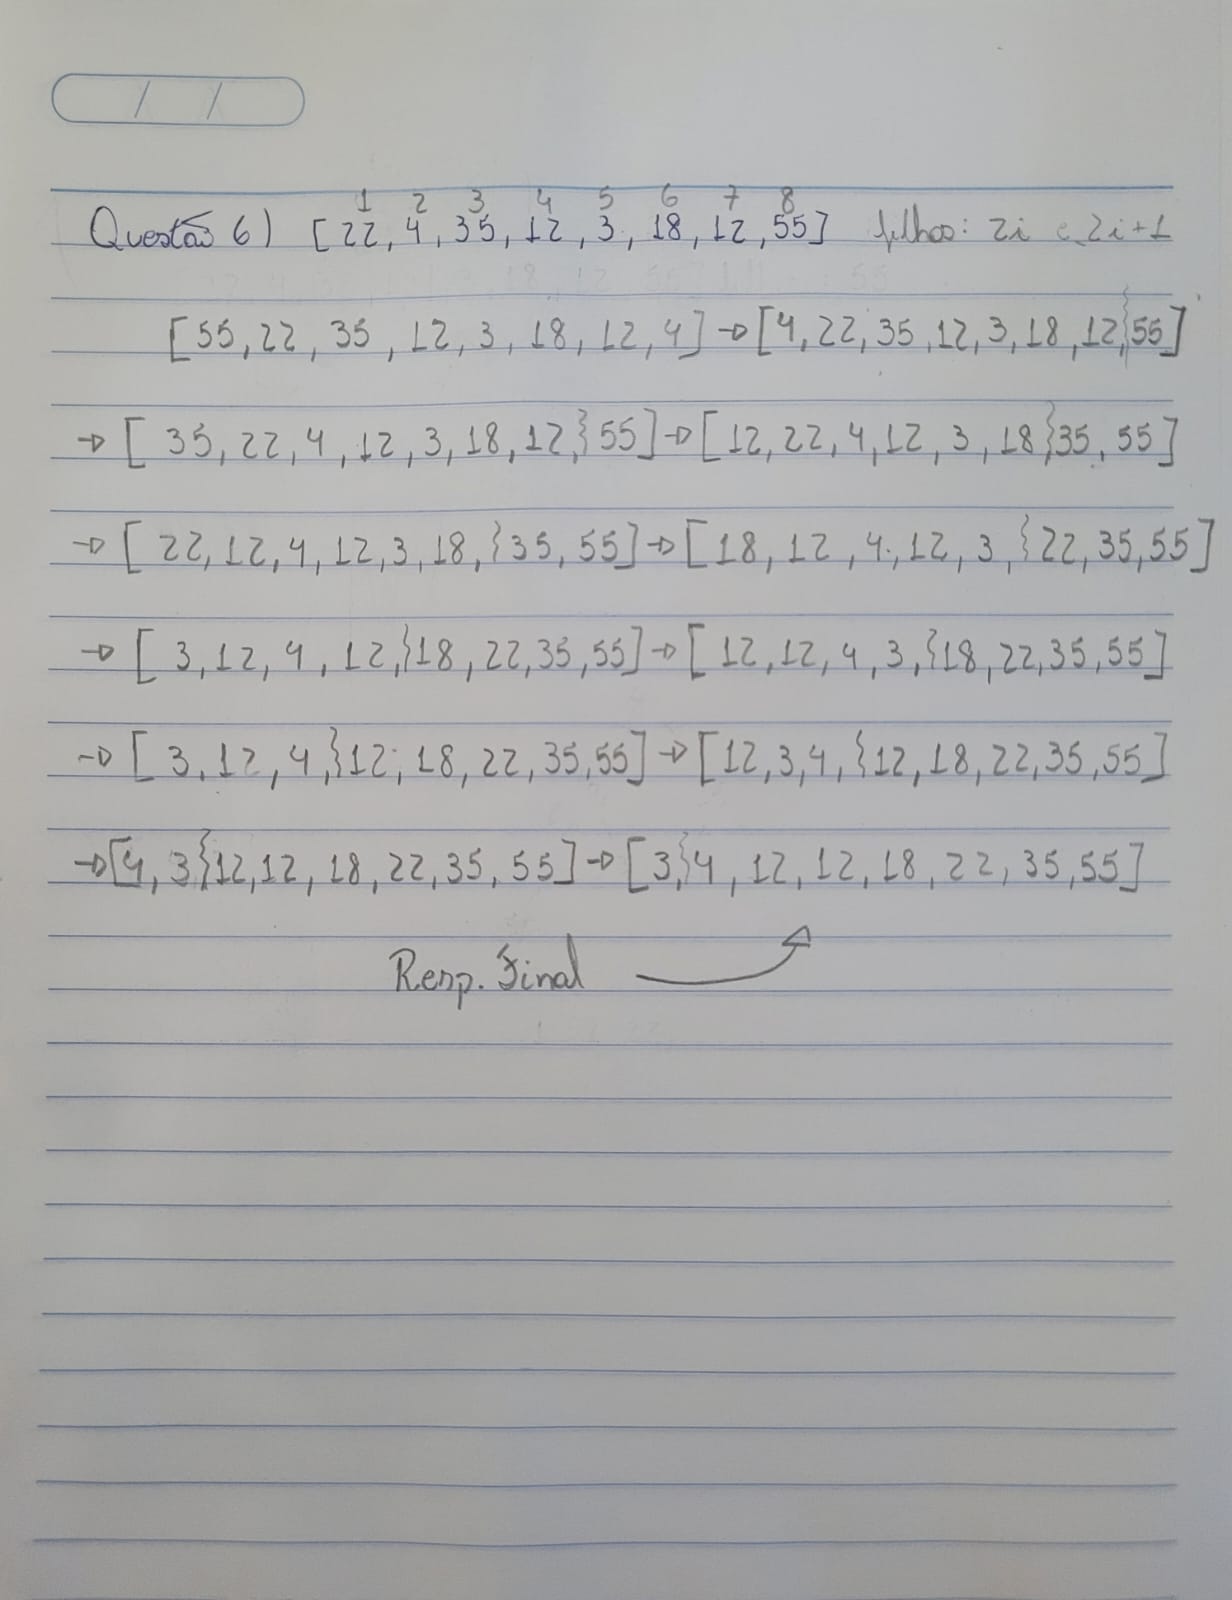 1 2 3 4 5 6 7 8
Questão 6) [22, 4, 35, 12, 3, 18, 12, 55] filhos: 2i e 2i+1
[55, 22, 35, 12, 3, 18, 12, 4] → [4, 22, 35, 12, 3, 18, 12,}55]
→ [35, 22, 4, 12, 3, 18, 12,} 55] → [12, 22, 4, 12, 3, 18}35, 55]
→ [22, 12, 4, 12, 3, 18,}35, 55] → [18, 12, 4, 12, 3,}22, 35, 55]
→ [3, 12, 4, 12,}18, 22, 35, 55] → [12, 12, 4, 3,{18, 22, 35, 55]
→ [3, 12, 4,}12, 18, 22, 35, 55] → [12, 3, 4,{12, 18, 22, 35, 55]
→ [4, 3}12, 12, 18, 22, 35, 55] → [3,}4, 12, 12, 18, 22, 35, 55]
Resp. Final